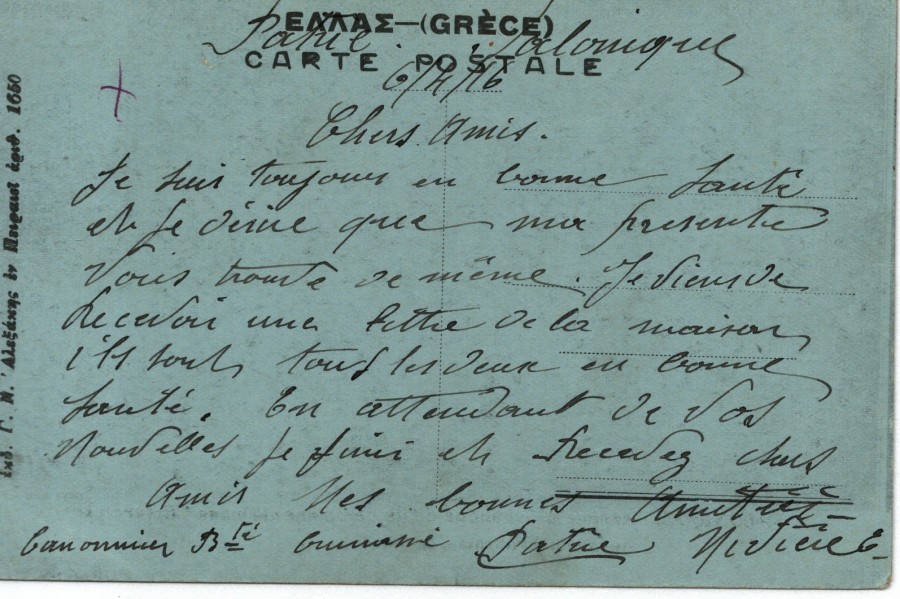 ΕΛΛΑΣ—(GRÈCE)
Salonique
CARTE POSTALE
6/4/16
Chers Amis.
Je suis toujours en bonne Santé
et Je désire que ma presente
Vous trouve de même. Je viens de
Recevoir une lettre de la maison
ils sont tous les deux en bonne
Santé. En attendant de vos
Nouvelles Je finis et Recevez chers
Amis Mes bonnes Amitiés
Canonnier Bie
ἐκδ. Γ. Ν. Ἀλεξάκης ἐν Πειραιεῖ ἀριθ. 1650